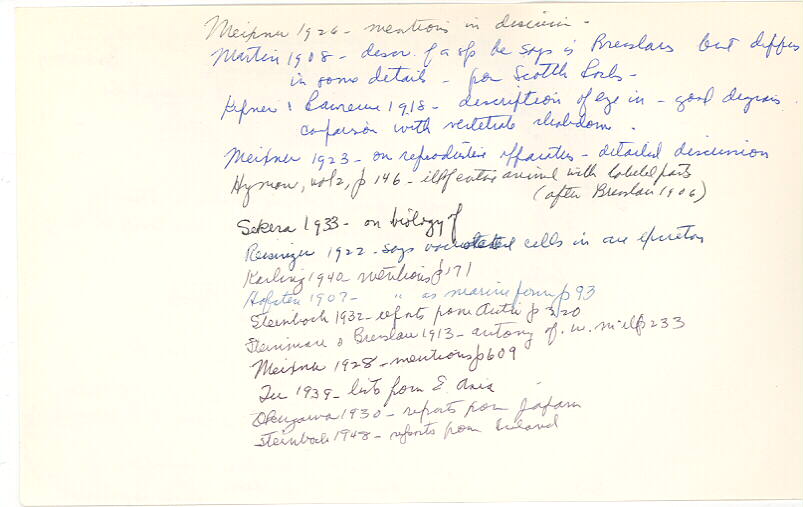 Meixner 1926 - mentions in discussion -
Martin 1908 - descr. of a sp he says is Breslau's but differs
in some details - from Scottish Lochs -
Kepner & Lawrence 1918 - description of eye in - good diagrams.
comparison with vertebrate rhabdome.
Meixner 1923 - on reproductive apparatus - detailed discussion
Hyman, vol 2, p 146 - ill of entire animal with labeled parts
(after Breslau 1906)
Sekera 1933 - on biology of
Reisinger 1922 - says cells in are excretory
Karling 1940 mentions p 171
Hofsten 1907 - " as marine form p 93
Steinböck 1932 - reports from p 320
& Breslau 1913 - of. w. p 233
Meixner 1928 - mentions p 609
Tu 1939 - lists from E. Asia
Okugawa 1930 - reports from Japan
Steinböck 1948 - reports from Iceland